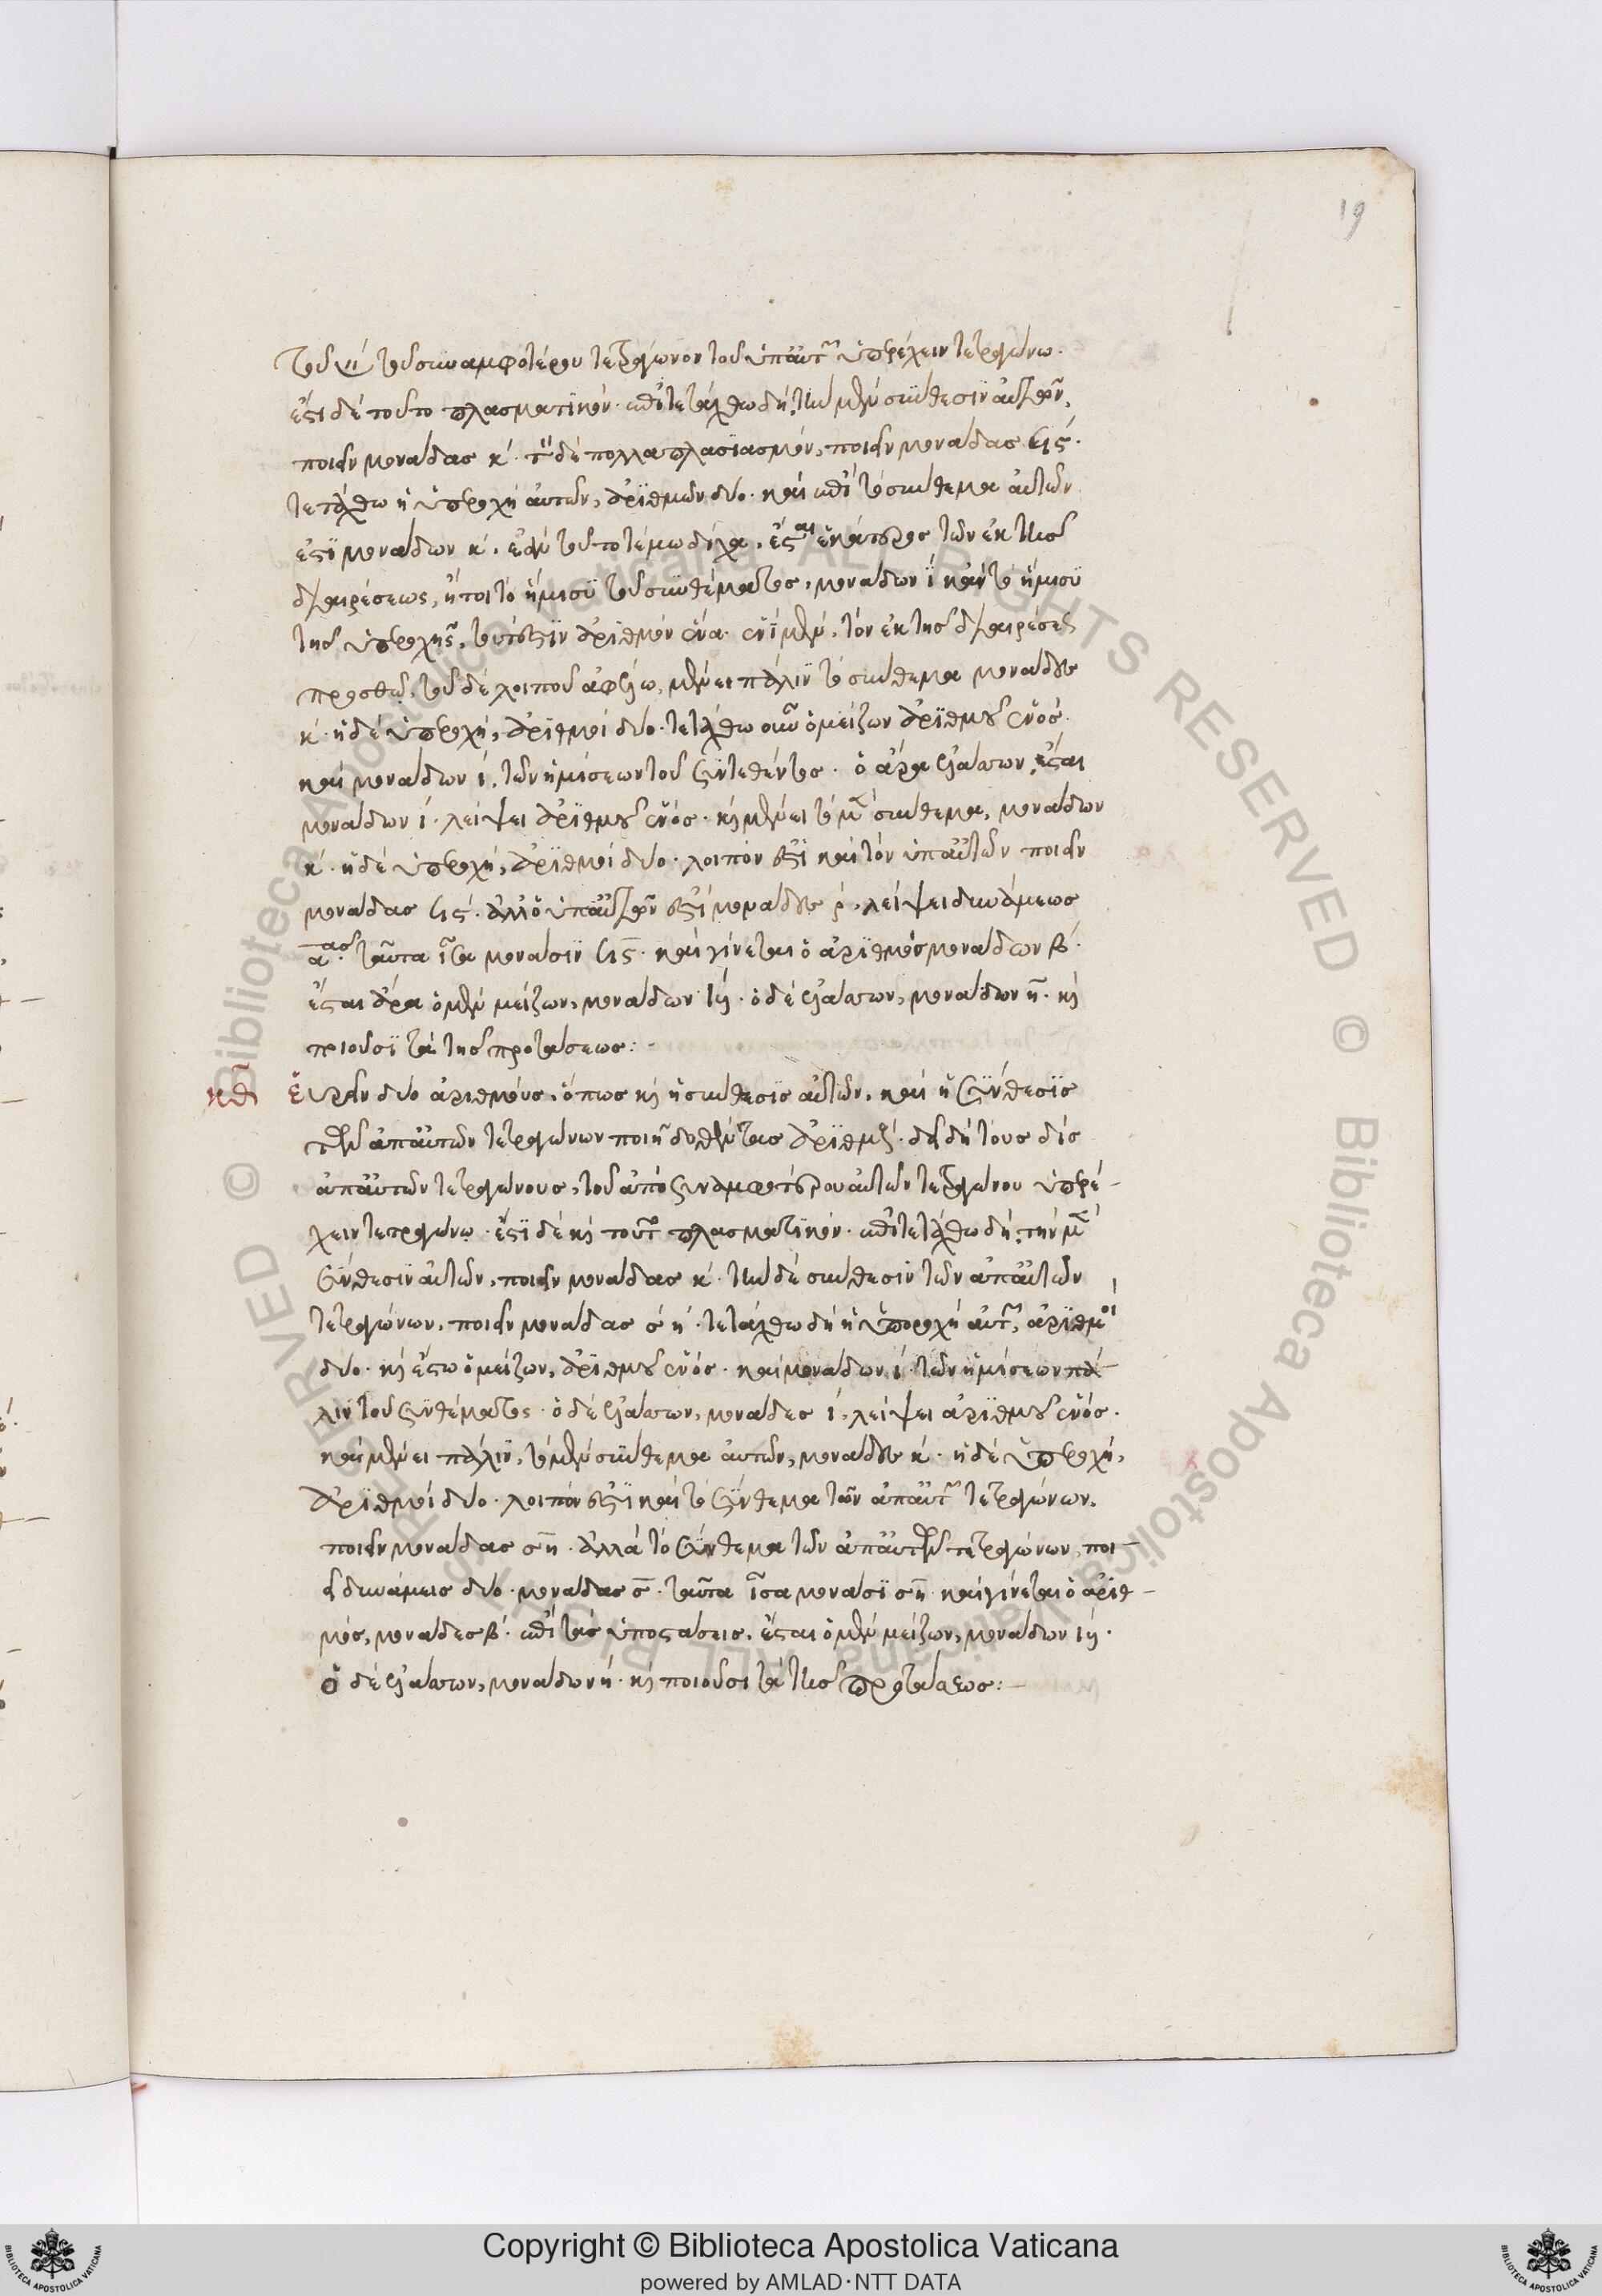 19
τοῦ ἡμίσους τοῦ συναμφοτέρου τετράγωνον τοῦ ὑπ' αὐτῶν ὑπερέχειν τετραγώνω.
ἔστι δὲ τοῦτο πλασματικόν. ἐπιτετάχθω δὴ τὴν μὲν σύνθεσιν αὐτῶν,
ποιεῖν μονάδας κ̄. τὸν δὲ πολλαπλασιασμόν, ποιεῖν μονάδας ϟς.
τετάχθω ἡ ὑπεροχὴ αὐτῶν, ἀριθμῶν δύο. καὶ ἐπεὶ τὸ σύνθεμα αὐτῶν
ἐστὶ μονάδων κ̄. ἐὰν τοῦτο τέμω δίχα. ἔσται ἑκάτερος τῶν ἐκ τῆς
διαιρέσεως, ἤτοι τὸ ἥμισυ τοῦ συνθέματος, μονάδων ῑ. κἂν τὸ ἥμισυ
τῆς ὑπεροχῆς, τουτέστιν ἀριθμὸν ἕνα. ἑνὶ μὲν, τῶν ἐκ τῆς διαιρέσεως
προσθῶ, τοῦ δὲ λοιποῦ ἀφέλω, μένει πάλιν τὸ σύνθεμα μονάδες
κ̄. ἡ δὲ ὑπεροχή, ἀριθμοὶ δύο. τετάχθω οὖν ὁ μείζων ἀριθμοῦ ἑνός.
καὶ μονάδων ῑ. τῶν ἡμίσεων τοῦ συντεθέντος. ὁ ἄρα ἐλάττων, ἔσται
μονάδων ῑ. λείψει ἀριθμοῦ ἑνός. καὶ μένει τὸ μὲν σύνθεμα, μονάδων
κ̄. ἡ δὲ ὑπεροχή, ἀριθμοὶ δύο. λοιπόν ἐστι καὶ τὸν ὑπ' αὐτῶν ποιεῖν
μονάδας ϟς. ἀλλ' ὁ ὑπ' αὐτῶν ἐστὶ μονάδες ρ̄, λείψει δυνάμεως
α̅ας. ταῦτα ἴσα μονάσιν ϟς̄. καὶ γίνεται ὁ ἀριθμὸς μονάδων β̄.
ἔσται ἄρα ὁ μὲν μείζων, μονάδων ιβ. ὁ δὲ ἐλάττων, μονάδων η̄. καὶ
ποιοῦσι τὰ τῆς προτάσεως:-
κθ εὑρεῖν δύο ἀριθμοὺς, ὅπως καὶ ἡ σύνθεσις αὐτῶν, καὶ ἡ σύνθεσις
τῶν ἀπ' αὐτῶν τετραγώνων ποιῆ δοθέντας ἀριθμούς. δεῖ δὴ τοὺς δὶς
ἀπ' αὐτῶν τετραγώνους, τοῦ ἀπὸ συναμφοτέρου αὐτῶν τετραγώνου ὑπερέ-
χειν τετραγώνω. ἔστι δὲ καὶ τοῦτο πλασματικόν. ἐπιτετάχθω δὴ τὴν μὲν
σύνθεσιν αὐτῶν, ποιεῖν μονάδας κ̄. τὴν δὲ σύνθεσιν τῶν ἀπ' αὐτῶν
τετραγώνων, ποιεῖν μονάδας σ̄η. τετάχθω δὴ ἡ ὑπεροχὴ αὐτῶν, ἀριθμοὶ
δύο. καὶ ἔστω ὁ μείζων, ἀριθμοῦ ἑνός. καὶ μονάδων ῑ. τῶν ἡμίσεων πά-
λιν τοῦ συνθέματος. ὁ δὲ ἐλάττων, μονάδες ῑ, λείψει ἀριθμοῦ ἑνός.
καὶ μένει πάλιν, τὸ μὲν σύνθεμα αὐτῶν, μονάδες κ̄. ἡ δὲ ὑπεροχή,
ἀριθμοὶ δύο. λοιπόν ἐστι καὶ τὸ σύνθεμα τῶν ἀπ' αὐτῶν τετραγώνων,
ποιεῖν μονάδας ση̄. ἀλλὰ τὸ σύνθεμα τῶν ἀπ' αὐτῶν τετραγώνων, ποι-
εῖ δυνάμεις δύο. μονάδας σ̄. ταῦτα ἴσα μονάσι ση̄. καὶ γίνεται ὁ ἀριθ-
μὸς, μονάδες β̄. ἐπὶ τὰς ὑποστάσεις. ἔσται ὁ μὲν μείζων, μονάδων ιβ.
ὁ δὲ ἐλάττων, μονάδων η̄. καὶ ποιοῦσι τὰ τῆς προτάσεως:-
Copyright © Biblioteca Apostolica Vaticana
powered by AMLAD·NTT DATA